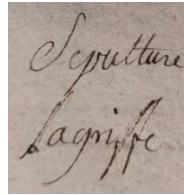 Sepulture
lagriffe